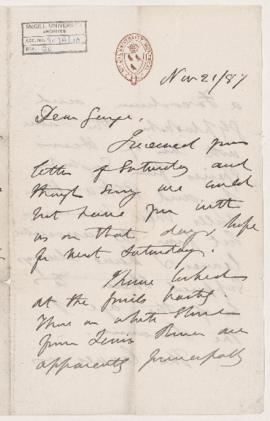 McGILL UNIVERSITY
ARCHIVES
ACC. NO.
REF.
Nov 21/87
Dear George,
I received your
letter of Saturday and
though sorry we could
not have you with
us on that day, hope
for next Saturday.
I have looked
at the fossils hastily.
Those on white
from are
apparently principally